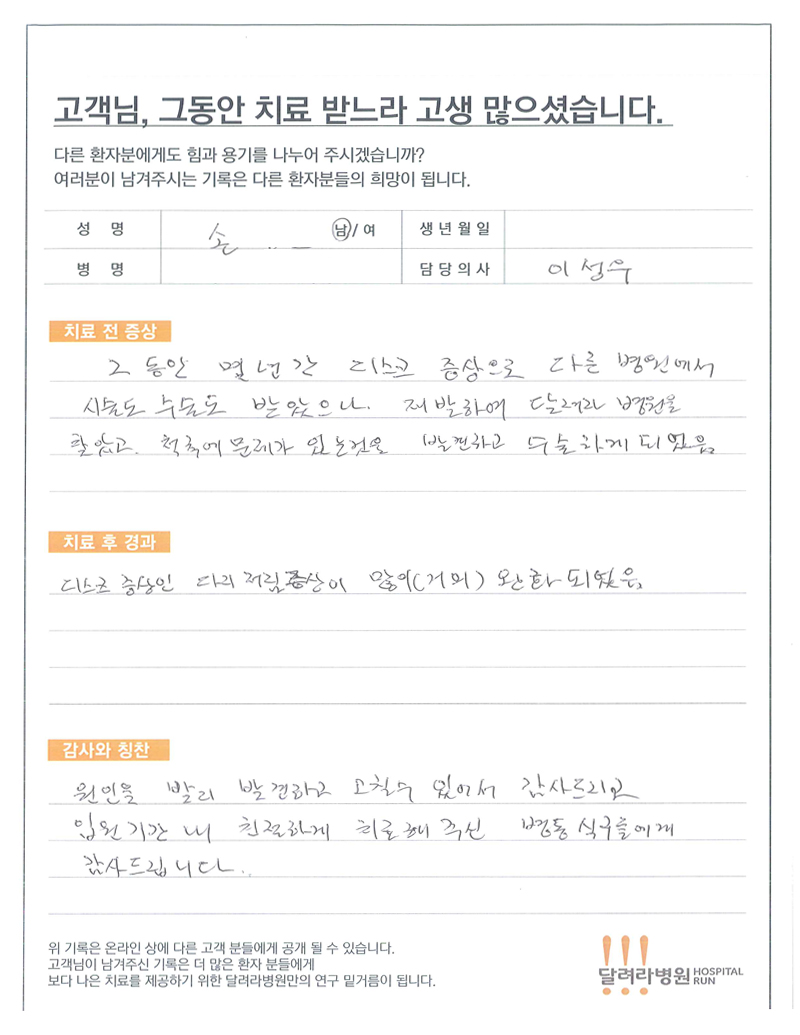 고객님, 그동안 치료 받느라 고생 많으셨습니다.
다른 환자분에게도 힘과 용기를 나누어 주시겠습니까?
여러분이 남겨주시는 기록은 다른 환자분들의 희망이 됩니다.
성 명 손 남/여 생년월일
병 명 담당의사 이성우
치료 전 증상
그 동안 몇 년 간 디스크 증상으로 다른 병원에서
시술도 수술도 받았으나. 재발하여 달려라 병원을
찾았고. 척추에 문제가 있는것을 발견하고 수술하게 되었음.
치료 후 경과
디스크 증상인 다리 저림증상이 많이(거의) 완화 되었음.
감사와 칭찬
원인을 빨리 발견하고 고칠수 있어서 감사드리고
입원기간 내 친절하게 치료해 주신 병동 식구들에게
감사드립니다..
위 기록은 온라인 상에 다른 고객 분들에게 공개 될 수 있습니다.
고객님이 남겨주신 기록은 더 많은 환자 분들에게
보다 나은 치료를 제공하기 위한 달려라병원만의 연구 밑거름이 됩니다.
!!!
달려라병원 HOSPITAL RUN